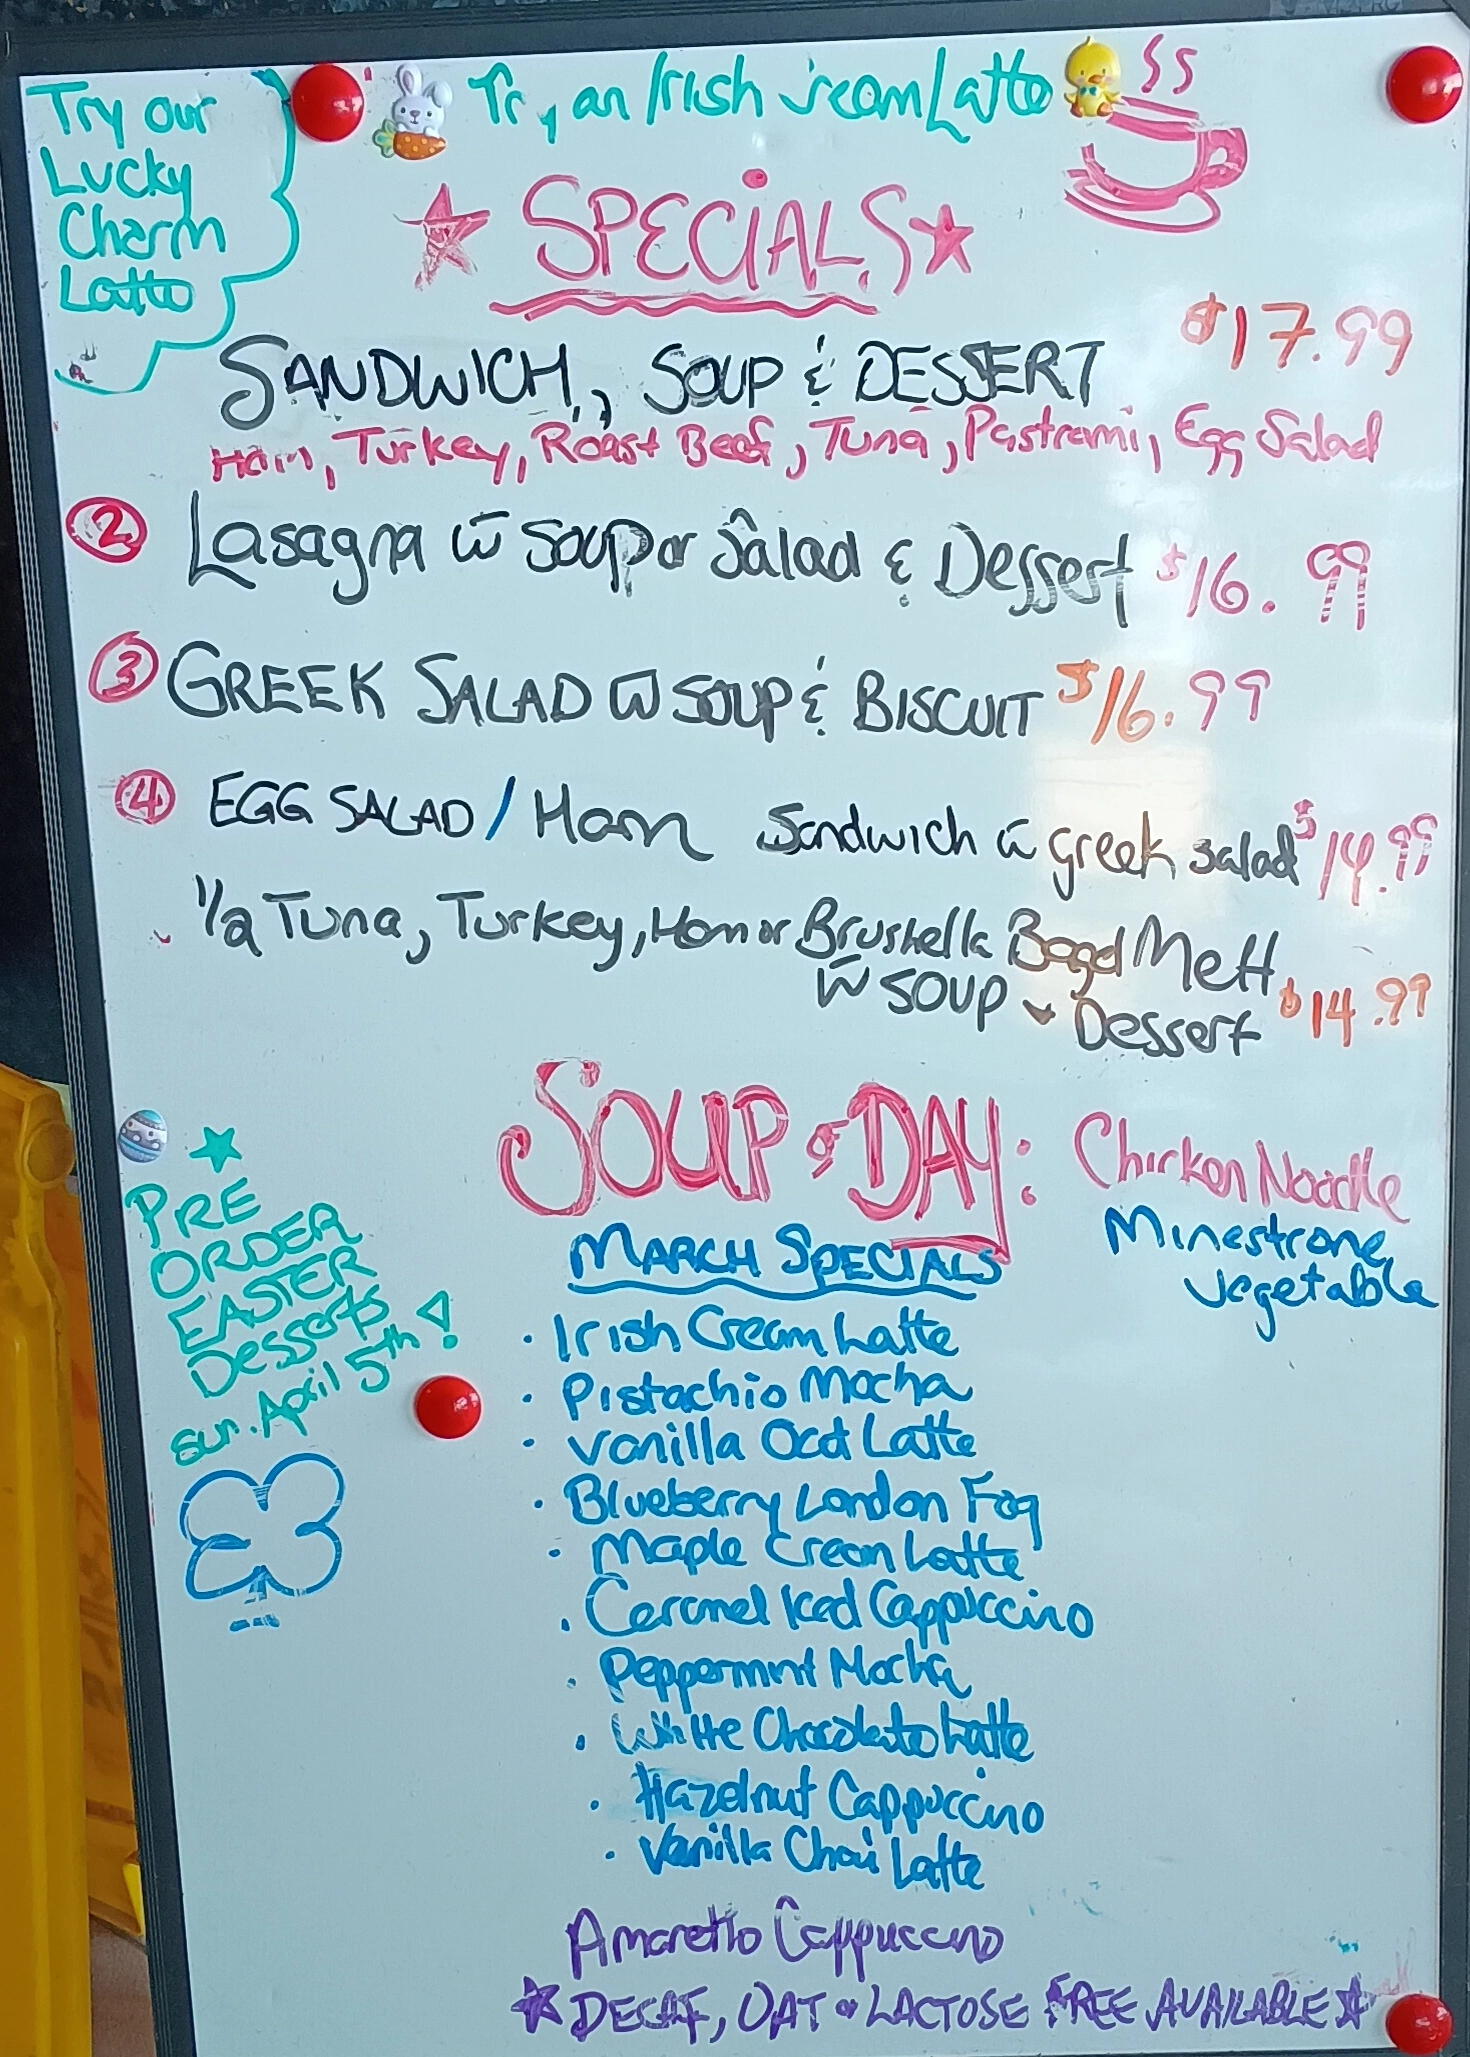 Try our
Lucky
Charm
Latte
Try an Irish Cream Latte
SPECIALS
SANDWICH, SOUP & DESSERT $17.99
Ham, Turkey, Roast Beef, Tuna, Pastrami, Egg Salad
2 Lasagna w Soup or Salad & Dessert $16.99
3 GREEK SALAD W SOUP & BISCUIT $16.99
4 EGG SALAD / Ham Sandwich w greek salad $14.99
1/2 Tuna, Turkey, Ham or Brushella Bagel Melt
w SOUP Dessert $14.99
SOUP of DAY: Chicken Noodle
Minestrone
Vegetable
PRE
ORDER
EASTER
Desserts
sun. April 5th!
MARCH SPECIALS
• Irish Cream Latte
• Pistachio Mocha
• Vanilla Oat Latte
• Blueberry London Fog
• Maple Cream Latte
• Caramel Iced Cappuccino
• Peppermint Mocha
• White Chocolate Latte
• Hazelnut Cappuccino
• Vanilla Chai Latte
Amaretto Cappuccino
DECAF, OAT or LACTOSE FREE AVAILABLE